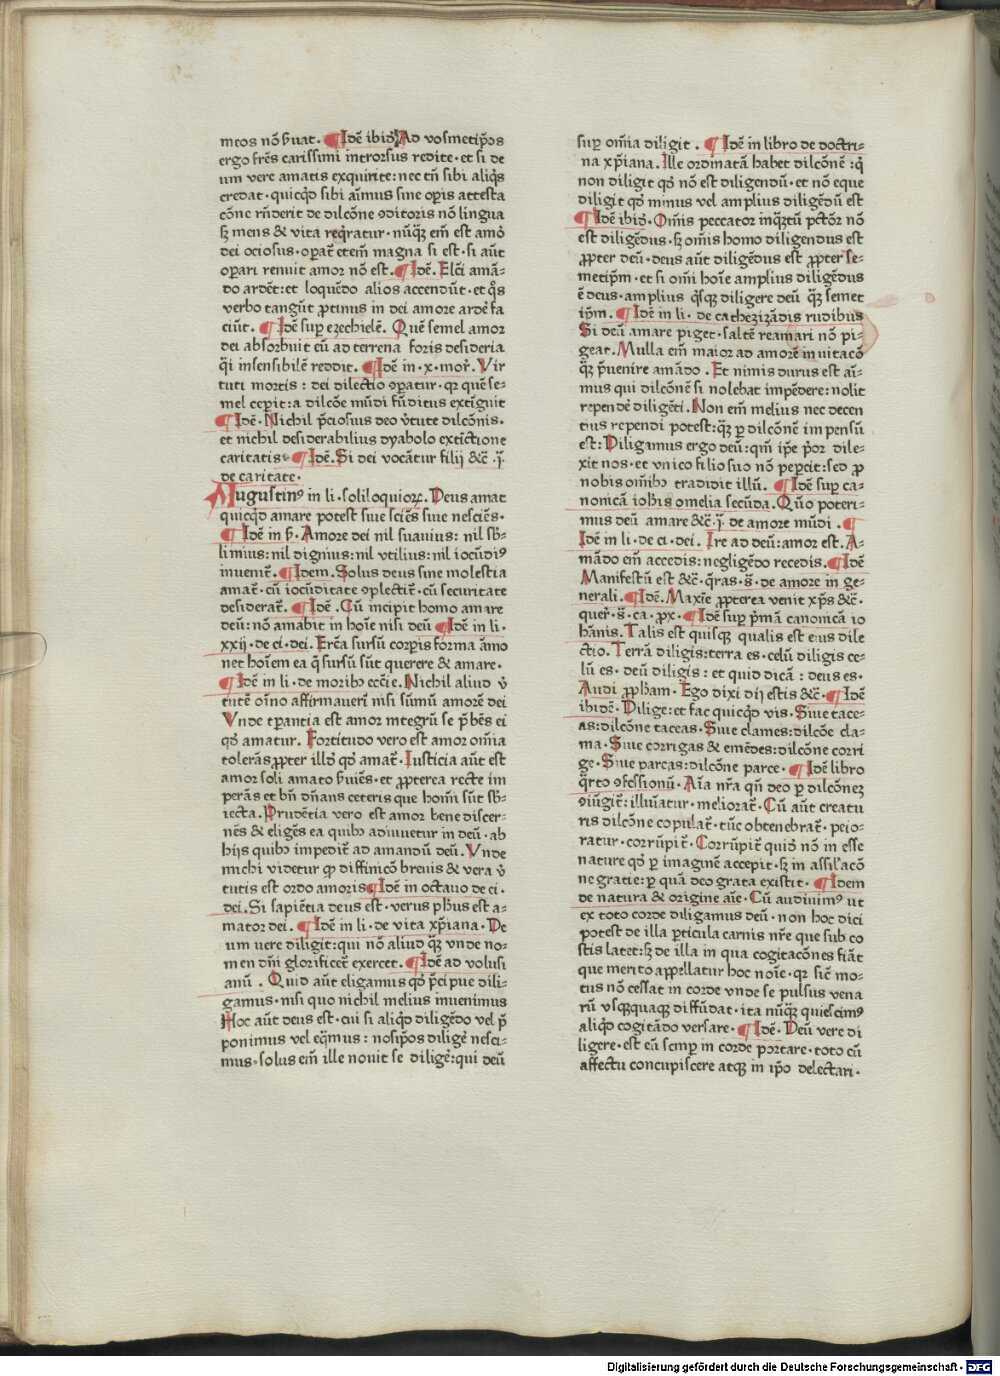 meos nō ẜuat. ¶Idē ibidꝫ Ad vosmetip̄os
ergo fr̄es carissimi introrsus redite· et si de
um vere amatis exquirite: nec tn̄ sibi aliq̄s
credat· quicq̄d sibi aīmus sine op̄is attesta
cōne rn̄derit de dilcōne ꝯditoris nō lingua
sꝫ mens & vita req̄ratur· nūq̄ꝫ em̄ est amō
dei ociosus· opat̄ etem̄ magna si est· si aūt
opari renuit amor nō est. ¶Idē. Elc̄i amā⸗
do ardēt: et loquēdo alios accendūt· et q̄s
verbo tangūt ꝓtinus in dei amore ardē fa
ciūt. ¶Idē sup ezechielē. Quē semel amor
dei absorbuit cū ad terrena foris desideria
q̄i insensibilē reddit. ¶Idē in · x· mor̄. Vir
tuti mortis : dei dilectio ꝯparatur· qꝛ quē se⸗
mel cepit: a dilcōe mūdi fūditus extīguit
¶Idē· Nichil p̄ciosius deo v̄tute dilcōnis·
et nichil desiderabilius dyabolo extīctione
caritatis· ¶Idē. Si dei vocātur filij &c̄ ·j̄·
de caritate·
Augustinꝰ in li· soliloquioꝝ. Deus amat
quicq̄d amare potest siue sciēs siue nesciēs·
¶Idē in ẜ. Amore dei nil suauius: nil sb̄⸗
limius: nil dignius: nil vtilius: nil iocūdiꝰ
inuenit̄. ¶Idem. Solus deus sine molestia
amat̄· cū iocūditate ꝯplectit̄· cū securitate
desiderat̄. ¶Idē . Cū incipit homo amare
deū: nō amabit in hoīe nisi deū ¶Idē in li·
xxij· de ci· dei. Er̄ca sursū corp̄is forma āmo
net hoīem ea q̄ sursū sūt querere & amare·
¶Idē in li· de moribꝫ eccīe. Nichil aliud v̄
tutē oīno affirmauer̄ nisi sūmū amorē dei
Vnde tꝑantia est amor integrū se p̄bēs ei
qd̄ amatur. Fortitudo vero est amor om̄ia
tolerās ꝓpter illd̄ qd̄ amat̄· Iusticia aūt est
amor soli amato ẜuiēs· et ꝓpterea recte im
perās et bn̄ dn̄ans ceteris que homī sūt sb̄⸗
iecta. Prudētia vero est amor bene discer⸗
nēs & eligēs ea quibꝫ adiuuetur in deū· ab
hijs quibꝫ impedit̄ ad amandū deū. Vnde
michi videtur ꝙ diffinicō breuis & vera v̄
tutis est ordo amoris ¶Idē in octauo de ci·
dei. Si sapiētia deus est· verus ph̄us est a⸗
mator dei. ¶Idē in li· de vita xp̄iana· De
um uere diligit: qui nō aliud q̄ꝫ vnde no⸗
men dn̄i glorificet̄ exercet. ¶Idē ad volusi
anū . Quid aūt eligamus qd̄ p̄cipue dili⸗
gamus· nisi quo nichil melius inuenimus
Hoc aūt deus est· cui si aliq̄d diligēdo vel p̄
ponimus vel eq̄mus : nosip̄os diligē nesci⸗
mus· solus em̄ ille nouit se diligē: qui deū
sup om̄ia diligit . ¶Idē in libro de doctri⸗
na xp̄iana. Ille ordinatā habet dilcōnē : q̄
non diligit qd̄ nō est diligendū· et nō eque
diligit qd̄ minus vel amplius diligēdū est
¶Idē ibid̄· Om̄is peccator inq̄ꝫtū pctōr nō
est diligēdus· sꝫ om̄is homo diligendus est
ꝓpter deū· deus aūt diligēdus est ꝓpter se⸗
metip̄m· et si om̄i hoīe amplius diligēdus
ē deus· amplius q̄sqꝫ diligere deū q̄ꝫ semet
ip̄m. ¶Idē in li· de cathezizādis rudibus
Si deū amare piget· saltē reamari nō pi⸗
geat. Nulla em̄ maior ad amorē inuitacō
q̄ꝫ p̄uenire amādo . Et nimis durus est aī⸗
mus qui dilcōnē si nolebat impēdere: nolit
rependē diligēti. Non em̄ melius nec decen
tius rependi potest: q̄ꝫ ꝑ dilcōnē impensū
est: Diligamus ergo deū: qm̄ ip̄e p̄or dile⸗
xit nos· et vnico filio suo nō pepcit: sed ꝓ
nobis om̄ibꝫ tradidit illū. ¶Idē sup ca⸗
nonicā ioh̄is omelia secūda. Quō poteri⸗
mus deū amare &c̄ ·j̄· de amore mūdi . ¶
Idē in li· de ci· dei. Ire ad deū: amor est. A⸗
mādo em̄ accedis: negligēdo recedis. ¶Idē
Manifestū est &c̄· q̄ras· s̄· de amore in ge⸗
nerali. ¶Idē. Maxīe ꝓpterea venit xp̄s &c̄·
quer̄· s̄· ca· ꝓx· ¶Idē sup p̄mā canonicā io
hānis. Talis est quisqꝫ qualis est eius dile
ctio. Terrā diligis: terra es· celū diligis ce⸗
lū es· deū diligis : et quid dicā : deus es·
Audi ꝓph̄am· Ego dixi dij estis &c̄· ¶Idē
ibidē· Dilige: et fac quicq̄d vis. Siue tace⸗
as: dilcōne taceas· Siue clames: dilcōe cla⸗
ma· Siue corrigas & emēdes: dilcōne corri
ge· Siue parcas: dilcōne parce· ¶Idē libro
q̄rto ꝯfessionū· Aīa nr̄a qn̄ deo ꝑ dilcōneꝫ
ꝯiūgit̄: illuīatur· meliorat̄· Cū aūt creatu
ris dilcōne copulat̄· tūc obtenebrat̄· peio⸗
ratur· corrūpit̄· Corrūpit̄ quid̄ nō in esse
nature qd̄ ꝑ imaginē accepit· sꝫ in assil̄acō
ne gratie: ꝑ quā deo grata existit· ¶Idem
de natura & origine aīe· Cū audiuimꝰ ut
ex toto corde diligamus deū· non hoc dici
potest de illa ꝑticula carnis nr̄e que sub co
stis latet: sꝫ de illa in qua cogitacōnes fiāt
que merito appellatur hoc noīe· qꝛ sic̄ mo⸗
tus nō cessat in corde vnde se pulsus vena
rū vsq̄quaqꝫ diffūdat· ita nūq̄ꝫ quiescimꝰ
aliq̄d cogitādo versare· ¶Idē· Deū vere di
ligere· est eū semp in corde portare· toto cū
affectu concupiscere atqꝫ in ip̄o delectari·
Digitalisierung gefördert durch die Deutsche Forschungsgemeinschaft - DFG